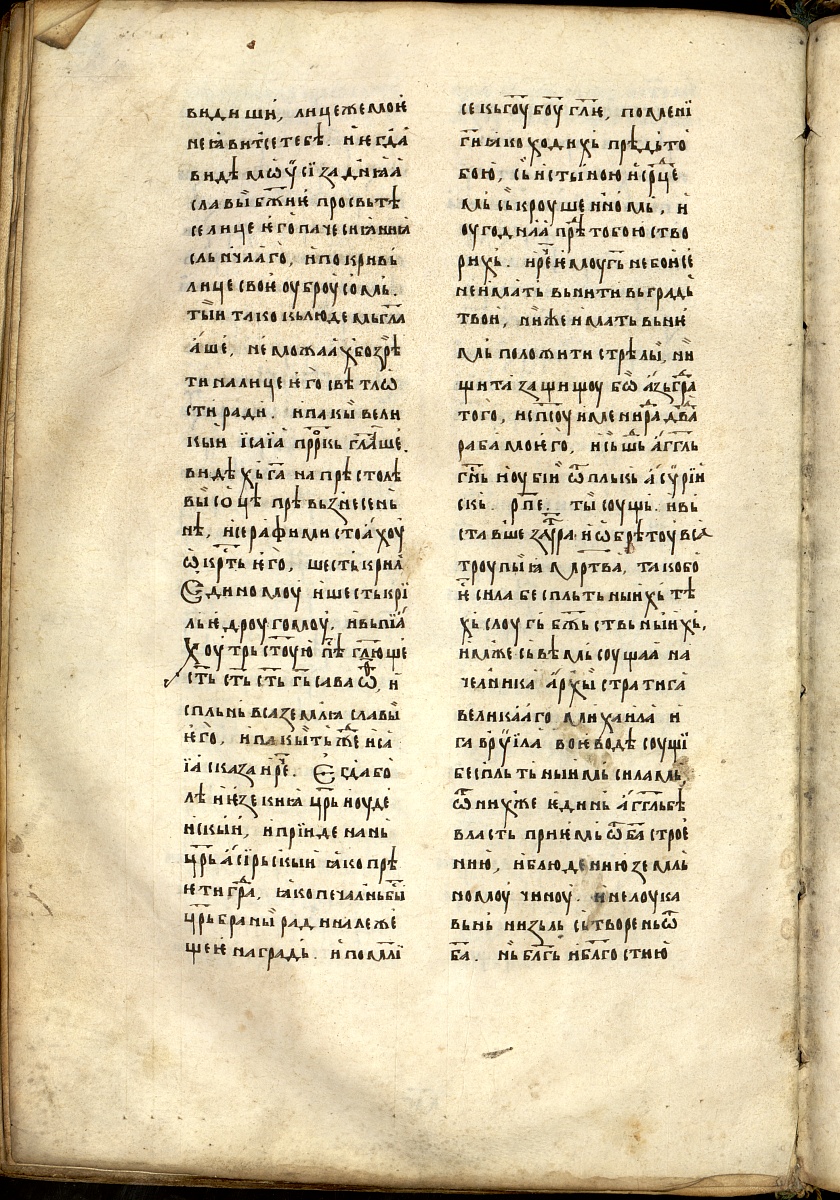 видиши, лице же мое
не ꙗвитсе тебѣ. и егда
видѣ мѡѵсі заднꙗа
славы бжїие просвьтѣ
се лице его паче сиꙗнїа
сльнчлаго, и покривь
лице свое оуброусомь.
тьи тако кь людемь гла
аше, не можаахꙋ бо зрѣ
ти на лице его свѣтлѡ
сти ради. и пакы вели
кыи їсаїа прркь глаше.
видѣхь га на прѣстолѣ
высоцѣ прѣвьзнесень
нѣ, и серафими стоахоу
ѡкрть его, шесть крил
Единомоу и шесть крї
ль и дроугомоу. и вьпїа
хоу трьстоую пѣ глюще
сть сть сть гь саваѡ, и
спльнь вса землꙗ славы
его, и пакы тьже иса
їа сказа ире. Егда бо
лѣ иезекиꙗ црь иоуде
искыи, и прїиде на нь
црь асірьскыи ꙗко прѣ
ети гра, ꙗко печалнь бы
црь браны ради належе
щее на градь. и помлї
се кь гоу боу глѥ, помени
ги ꙗко ходихь прѣдь то
бою, сь истыною и срце
мь ськроушенномь. и
оугоднаа прѣ тобою ство
рихь. и рѥ емоу гь не бои се
не имать вьнити вь градь
твои, ниже имать вь не
мь положити стрѣлы, ни
щита защищоу бѡ азь гра
того, и спсоу и мене ра двда
раба моего, и сьшь аггль
гнь и оуби ѿ плькь асѵрїи
скь. рпе. тысоущь. и вь
ставше заутра и ѡбрѣтоу вса
троупыꙗ мртва, тако бо
ѥ сила беспльтныихь тѣ
хь слоугь бжьствьныихь,
имже сь вѣмь соущаа на
челника архыстратига
великааго михаила и
гаврїила воеводѣ соущї
беспльтныимь силамь,
ѿ нихже единь аггль бѣ
власть приемь ѿ ба строе
нию, и блюдению земль
номоу чиноу. и не лоука
вьнь низьль сьтворень ѿ
ба. нь блгь и блгостию